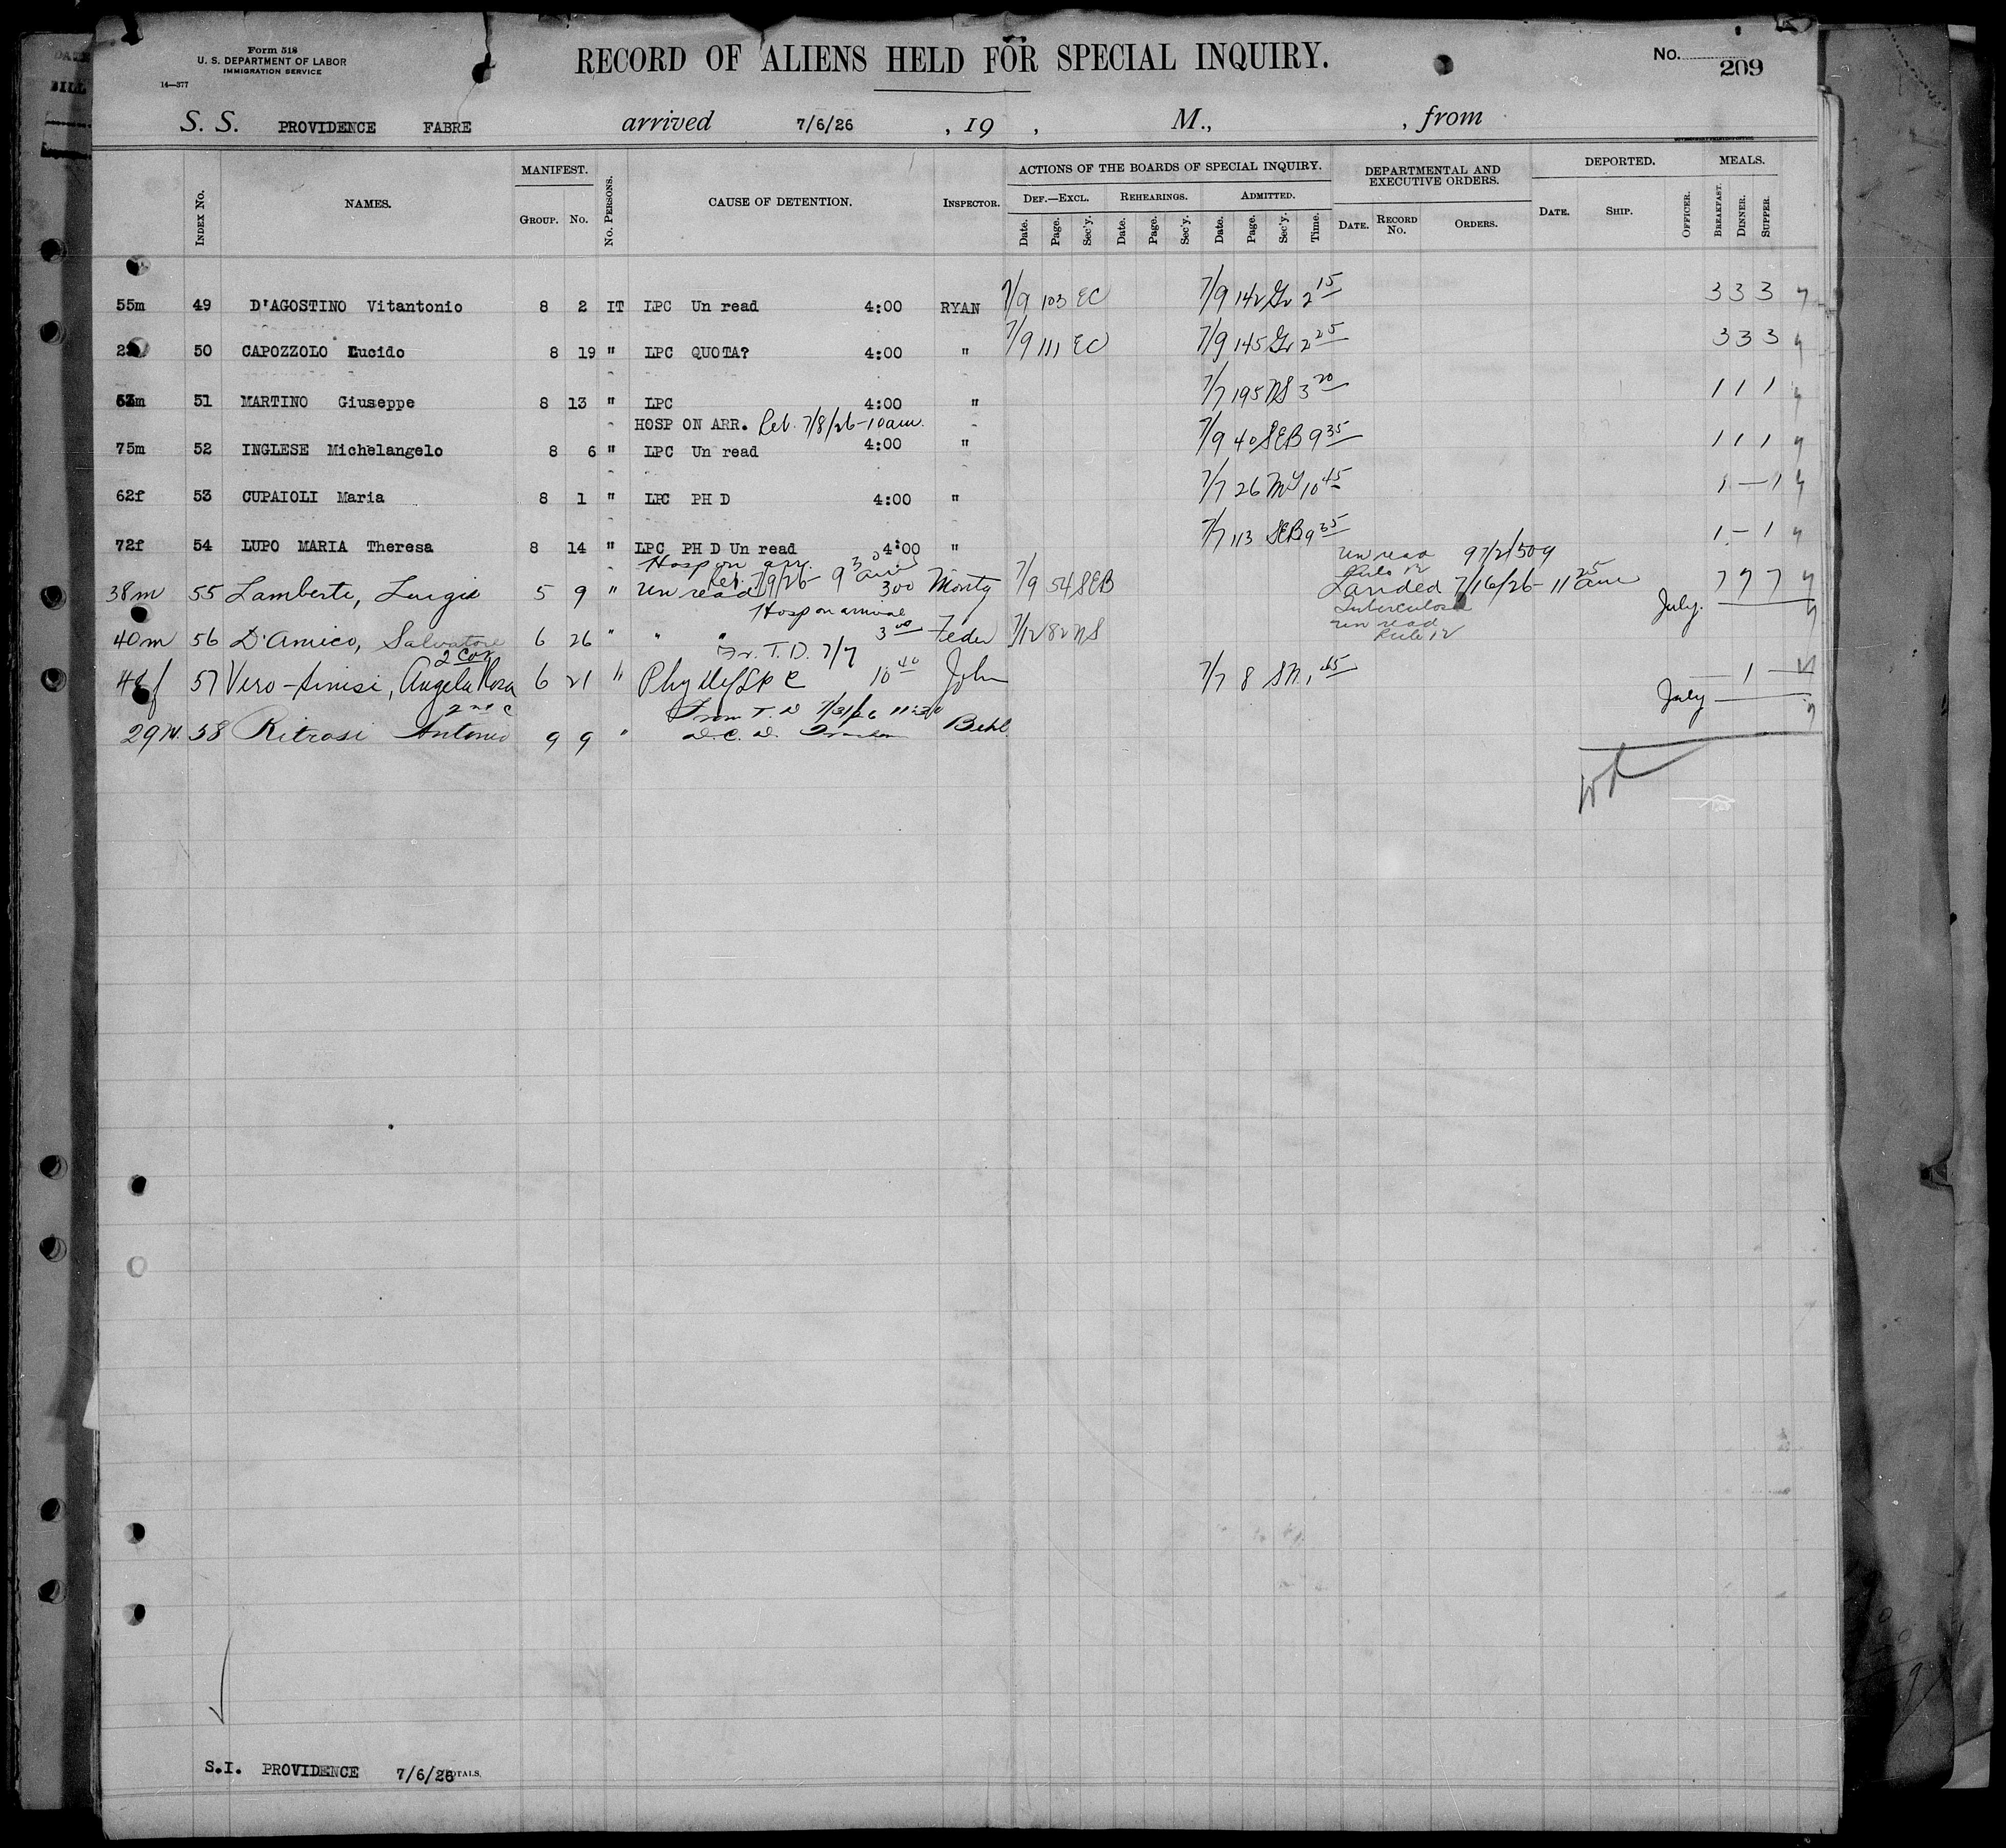 Form 518
U. S. DEPARTMENT OF LABOR
IMMIGRATION SERVICE
14—377
RECORD OF ALIENS HELD FOR SPECIAL INQUIRY.
No. 209
S. S. PROVIDENCE FABRE arrived 7/6/26 , 19 , M., , from
INDEX No. NAMES. MANIFEST. GROUP. No. No. PERSONS. CAUSE OF DETENTION. INSPECTOR. ACTIONS OF THE BOARDS OF SPECIAL INQUIRY. DEF.—EXCL. Date. Page. Sec'y. REHEARINGS. Date. Page. Sec'y. ADMITTED. Date. Page. Sec'y. Time. DEPARTMENTAL AND EXECUTIVE ORDERS. DATE. RECORD No. ORDERS. DEPORTED. DATE. SHIP. OFFICER. MEALS. BREAKFAST. DINNER. SUPPER.
55m 49 D'AGOSTINO Vitantonio 8 2 IT LPC Un read 4:00 RYAN 7/9 103 EC 7/9 142 Gr 2 15 3 3 3
50 CAPOZZOLO Lucido 8 19 " LPC QUOTA? 4:00 " 7/9 111 EC 7/9 145 Gr 2 25 3 3 3
51 MARTINO Giuseppe 8 13 " LPC 4:00 " 7/7 195 NS 3 20 1 1 1
HOSP ON ARR. Rel. 7/8/26-10am.
75m 52 INGLESE Michelangelo 8 6 " LPC Un read 4:00 " 7/9 40 SEB 9 35 1 1 1
62f 53 CUPAIOLI Maria 8 1 " LPC PH D 4:00 " 7/7 26 10 45 1 — 1
72f 54 LUPO MARIA Theresa 8 14 " LPC PH D Un read 4:00 " 7/7 113 SEB 9 35 1 — 1
Hosp on arr. Un read 97/2/509
Rel. 7/9/26- 9 30 am Rule 12
38m 55 Lamberti, Luigi 5 9 " Un read 3 00 Monty 7/9 54 SEB Landed 7/16/26-11 25 am 7 7 7
Hosp on arrival Tuberculosis July.
40m 56 D'Amico, Salvatore 6 26 " " " 3 00 Feder 7/12 82 NS Un read
Rule 12
2 Cab Fr. T. D. 7/7
57 Vero-Sinisi, Angela Rosa 6 21 " Phy def LPC 10 40 John 7/7 8 SM 1 45 1
2nd C From T. D 7/31/26 11:30 July
29 M. 58 Ritrosi Antonio 9 9 " Behl
S.I. PROVIDENCE 7/6/26 TOTALS.